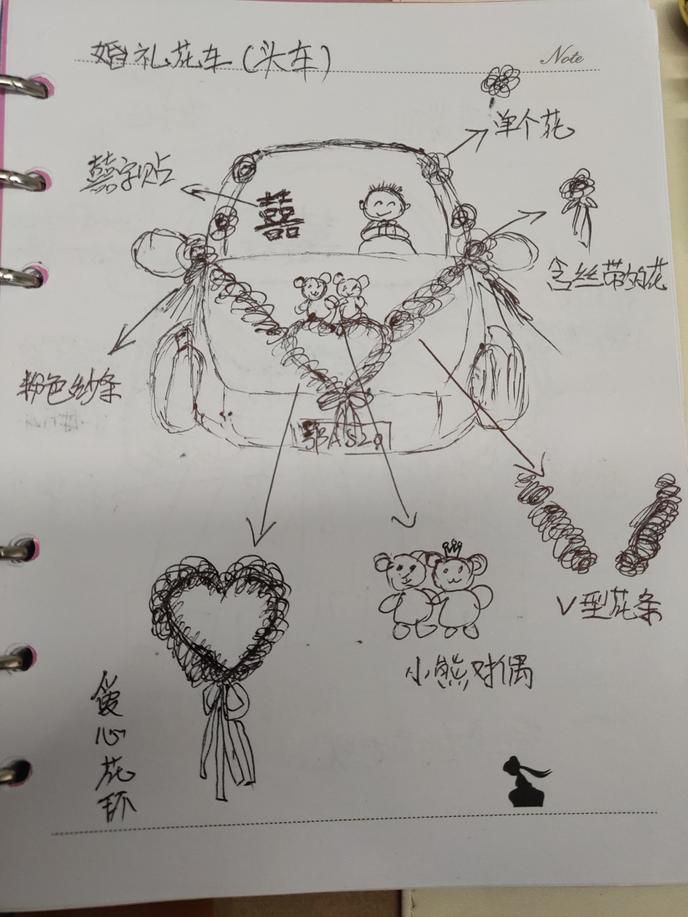 婚礼花车(头车)
Note
单个花
囍字贴
囍
含丝带的花
粉色纱条
鄂A520
V型花条
小熊对偶
爱心花环